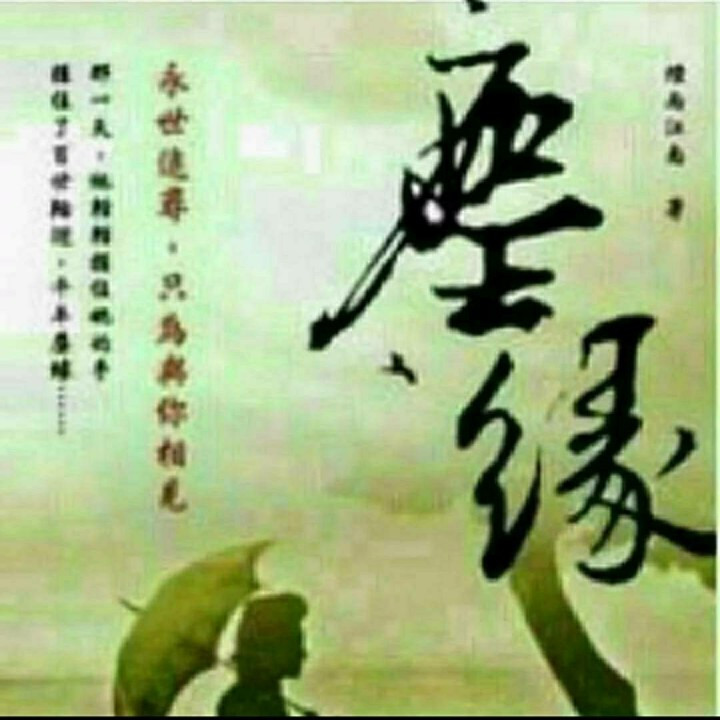 煙雨江南 著
塵緣
永世追尋，只為與你相見
那一天，他輕輕握住她的手
握住了百世輪迴，千年塵緣……